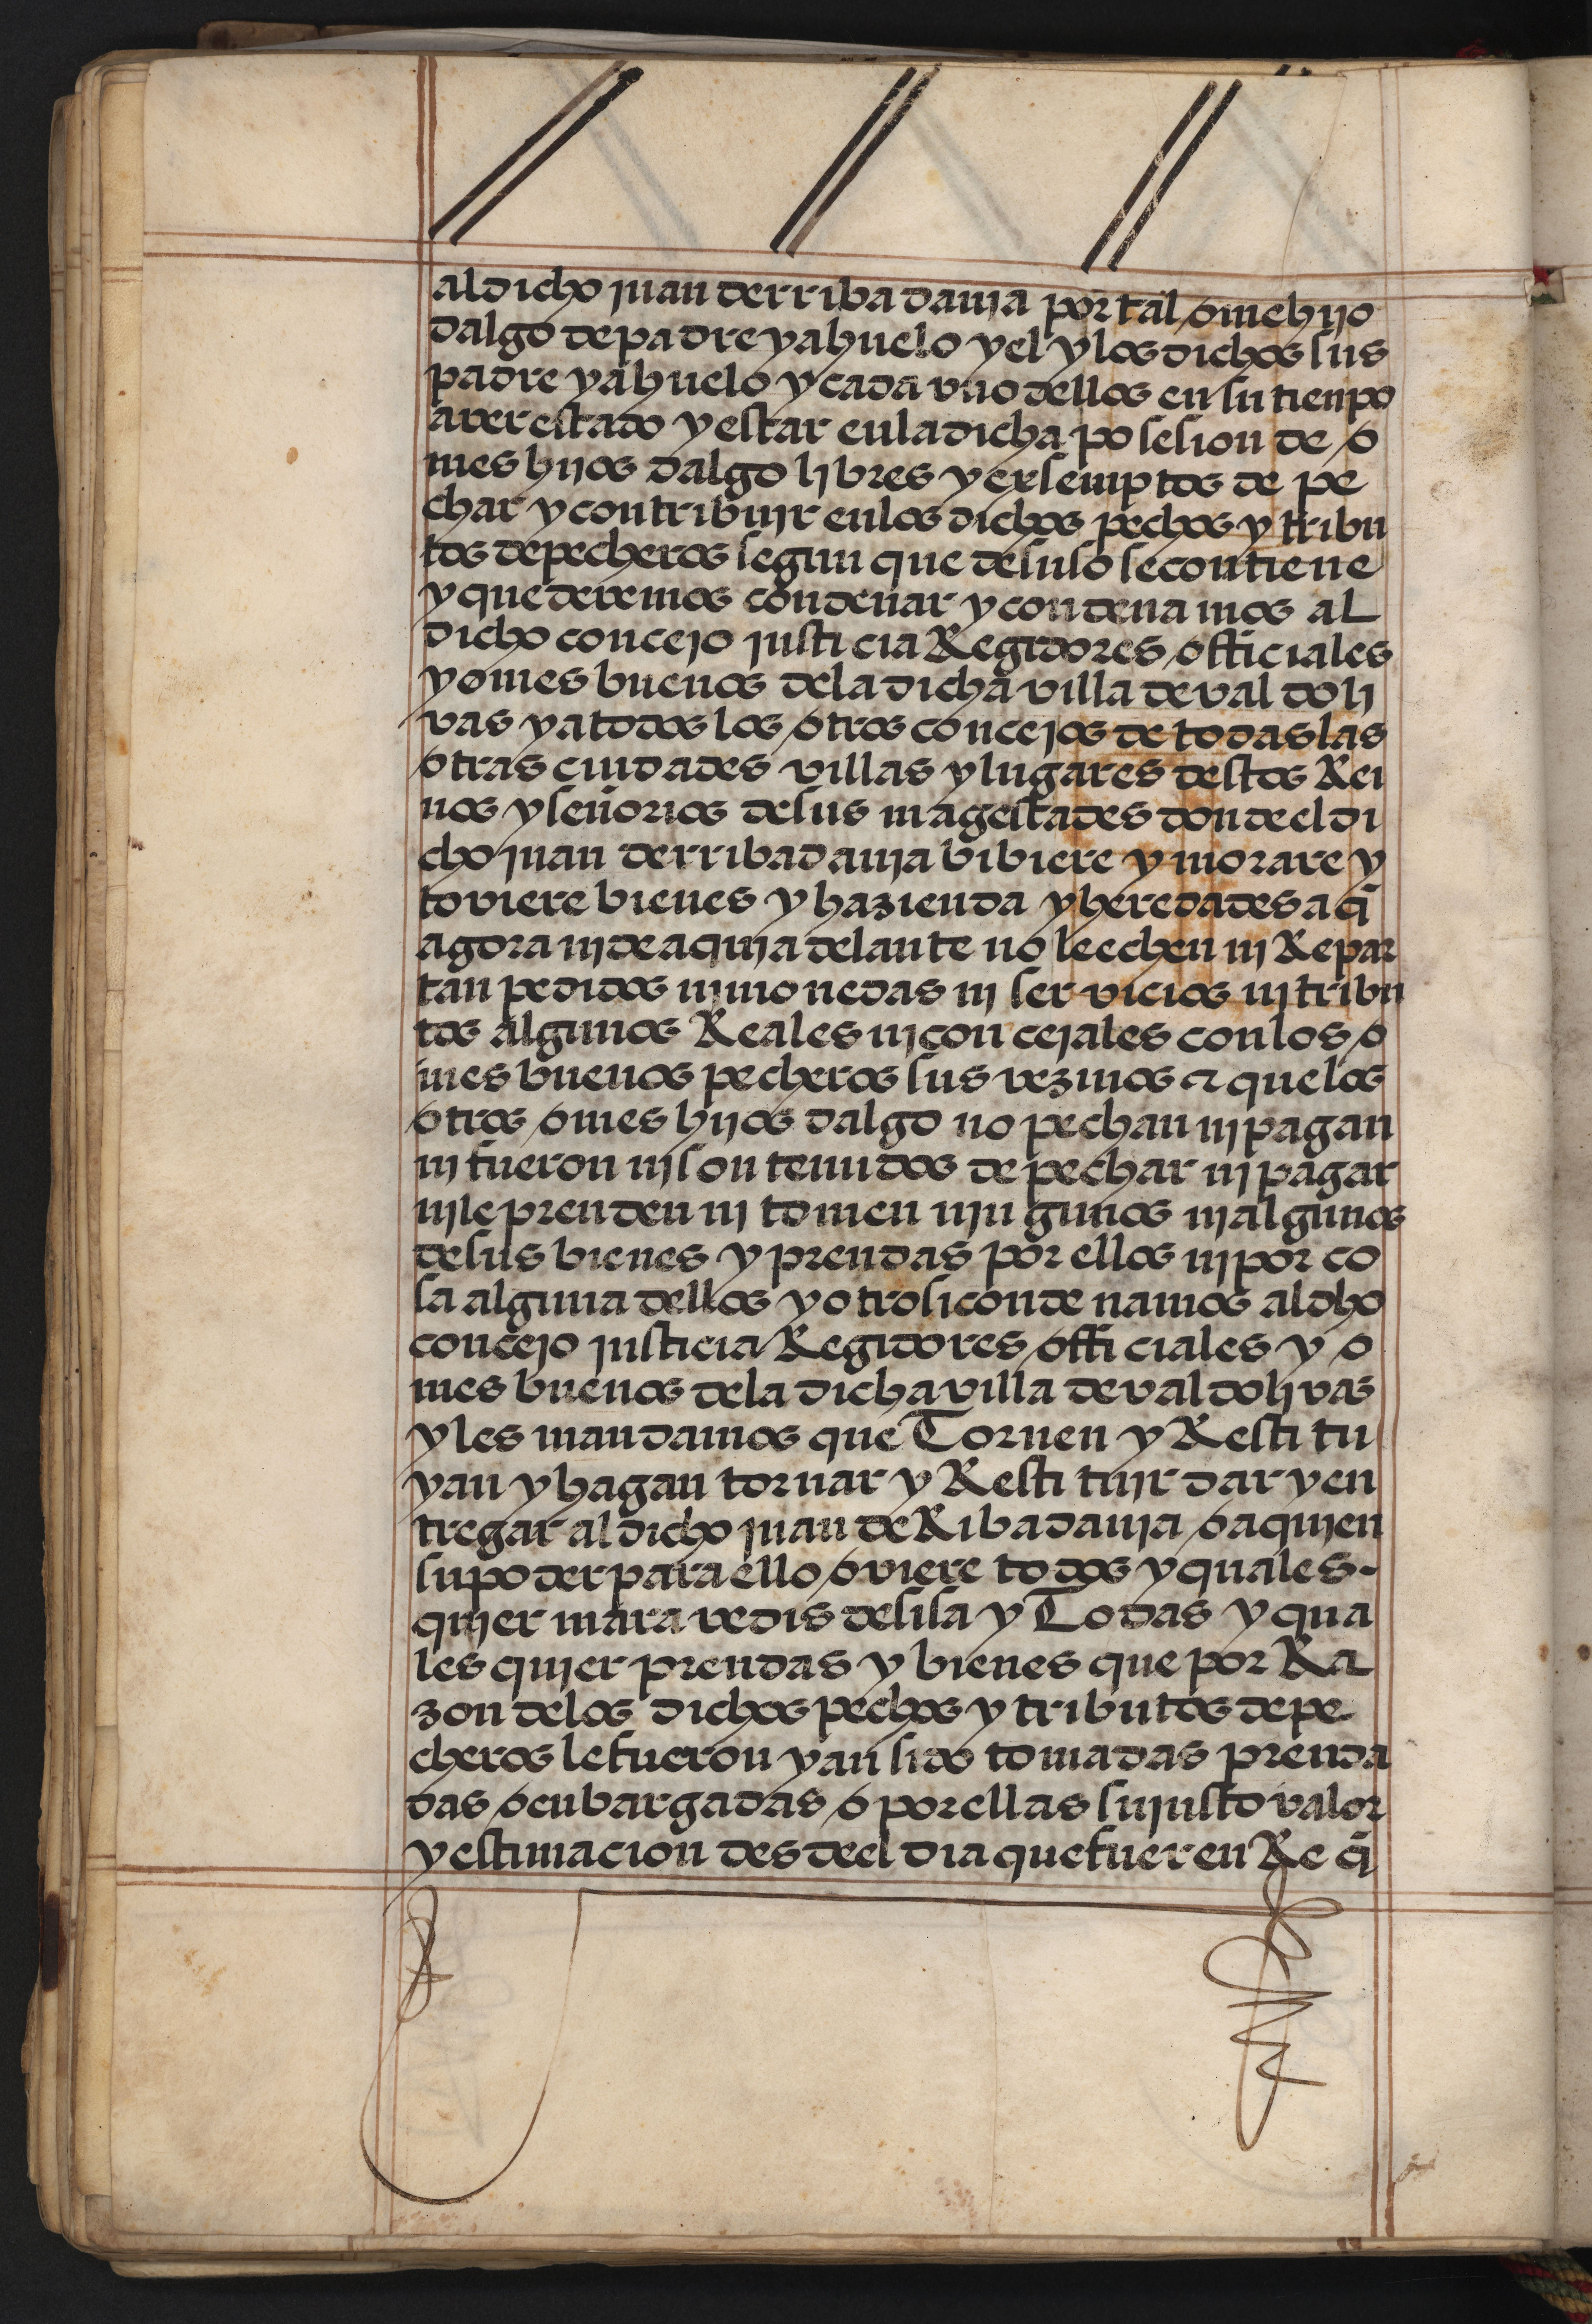 al dicho juan derribadauia por tal omehijo
dalgo de padre y ahuelo y el y los dichos sus
padre y ahuelo y cada vno dellos en su tienpo
aver estado y estar en la dicha posesion de o
mes hijos dalgo libres y exsemptos de pe
char y contribuir en los dichos pechos y tribu
tos de pecheros segun que de suso se contiene
y que devemos condenar y condenamos al
dicho concejo justicia Regidores officiales
y omes buenos de la dicha villa de val doli
vas y a todos los otros concejos de todas las
otras ciudades villas y lugares destos Rei
nos y señorios de sus magestades donde el di
cho juan derribadauia bibiere y morare y
toviere bienes y hazienda y heredades a q̄
agora ni de aqui adelante no le echen ni Repar
tan pedidos ni monedas ni servicios ni tribu
tos algunos Reales ni concejales con los o
mes buenos pecheros sus vezinos en que los
otros omes hijos dalgo no pechan ni pagan
ni fueron ni son tenudos de pechar ni pagar
ni le prenden ni tomen ningunos ni algunos
de sus bienes y prendas por ellos ni por co
sa alguna dellos y otrosi condenamos al dho
concejo justicia Regidores officiales y o
mes buenos de la dicha villa de val dolivas
y les mandamos que Tornen y Restitu
yan y hagan tornar y Restituir dar y en
tregar al dicho juan de Ribadauia o a quien
su poder para ello oviere todos y quales
quier maravedis de sisa y Todas y qua
les quier prendas y bienes que por Ra
zon de los dichos pechos y tributos de pe
cheros le fueron y an sido tomadas prenda
das o enbargadas o por ellas su justo valor
y estimacion desde el dia que fueren Re q̄